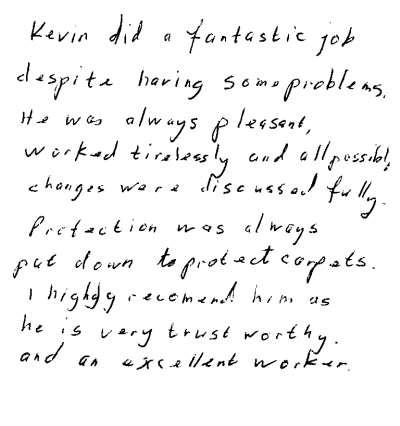 Kevin did a fantastic job
despite having some problems.
He was always pleasant,
worked tirelessly and all possible
changes were discussed fully.
Protection was always
put down to protect carpets.
I highly recomend him as
he is very trust worthy.
and an excellent worker.